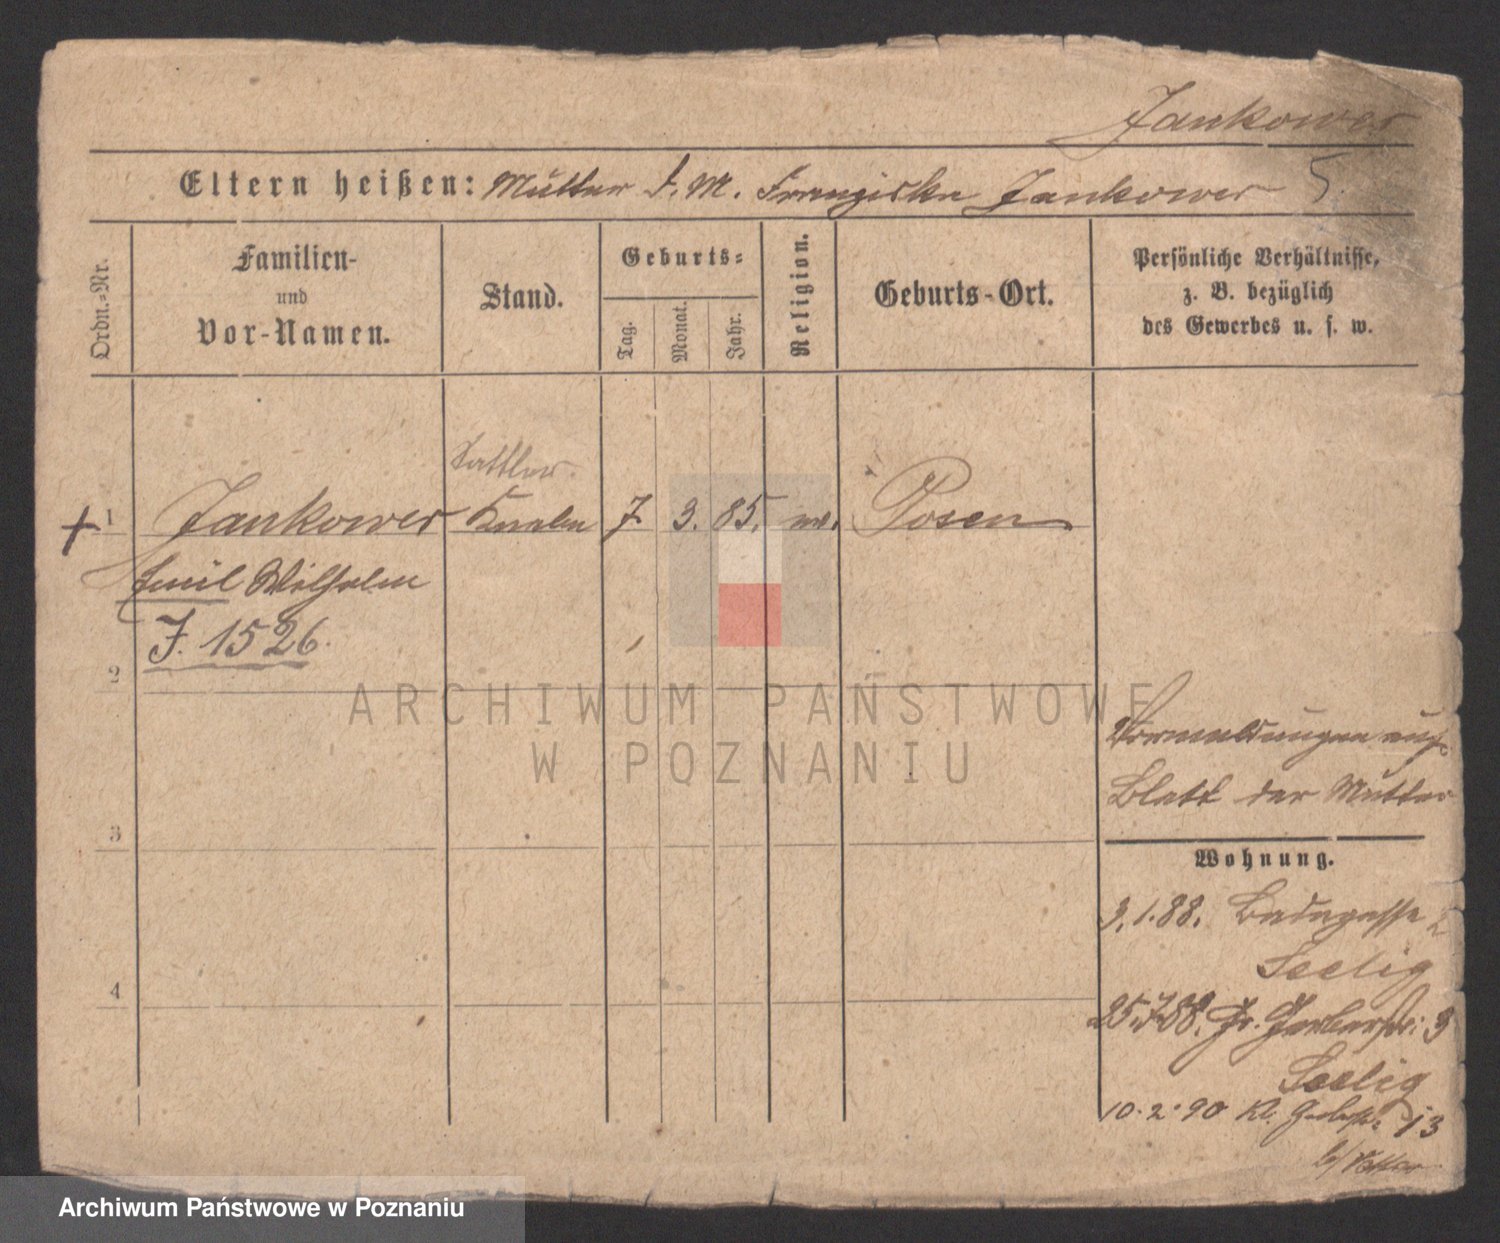 Jankower
Eltern heißen: Mutter d. M. Franziska Jankower 5.
Ordn.-Nr.
Familien-
und
Vor-Namen.
Stand.
Geburts-
Tag.
Monat.
Jahr.
Religion.
Geburts-Ort.
Persönliche Verhältnisse,
z. B. bezüglich
des Gewerbes u. s. w.
Sattler
+ 1 Jankower Knabe 7. 3. 85. Posen
Emil Wilhelm
J. 1526.
2
ARCHIWUM PAŃSTWOWE
W POZNANIU
Vormeldungen auf
Blatt der Mutter
3
Wohnung.
3.1.88. Badegasse 2
Seelig
4
25.7.88. Gr. Gerberstr: 3
Seelig
10.2.90 Kl. Gerbstr: 13
b/ Vetter
Archiwum Państwowe w Poznaniu